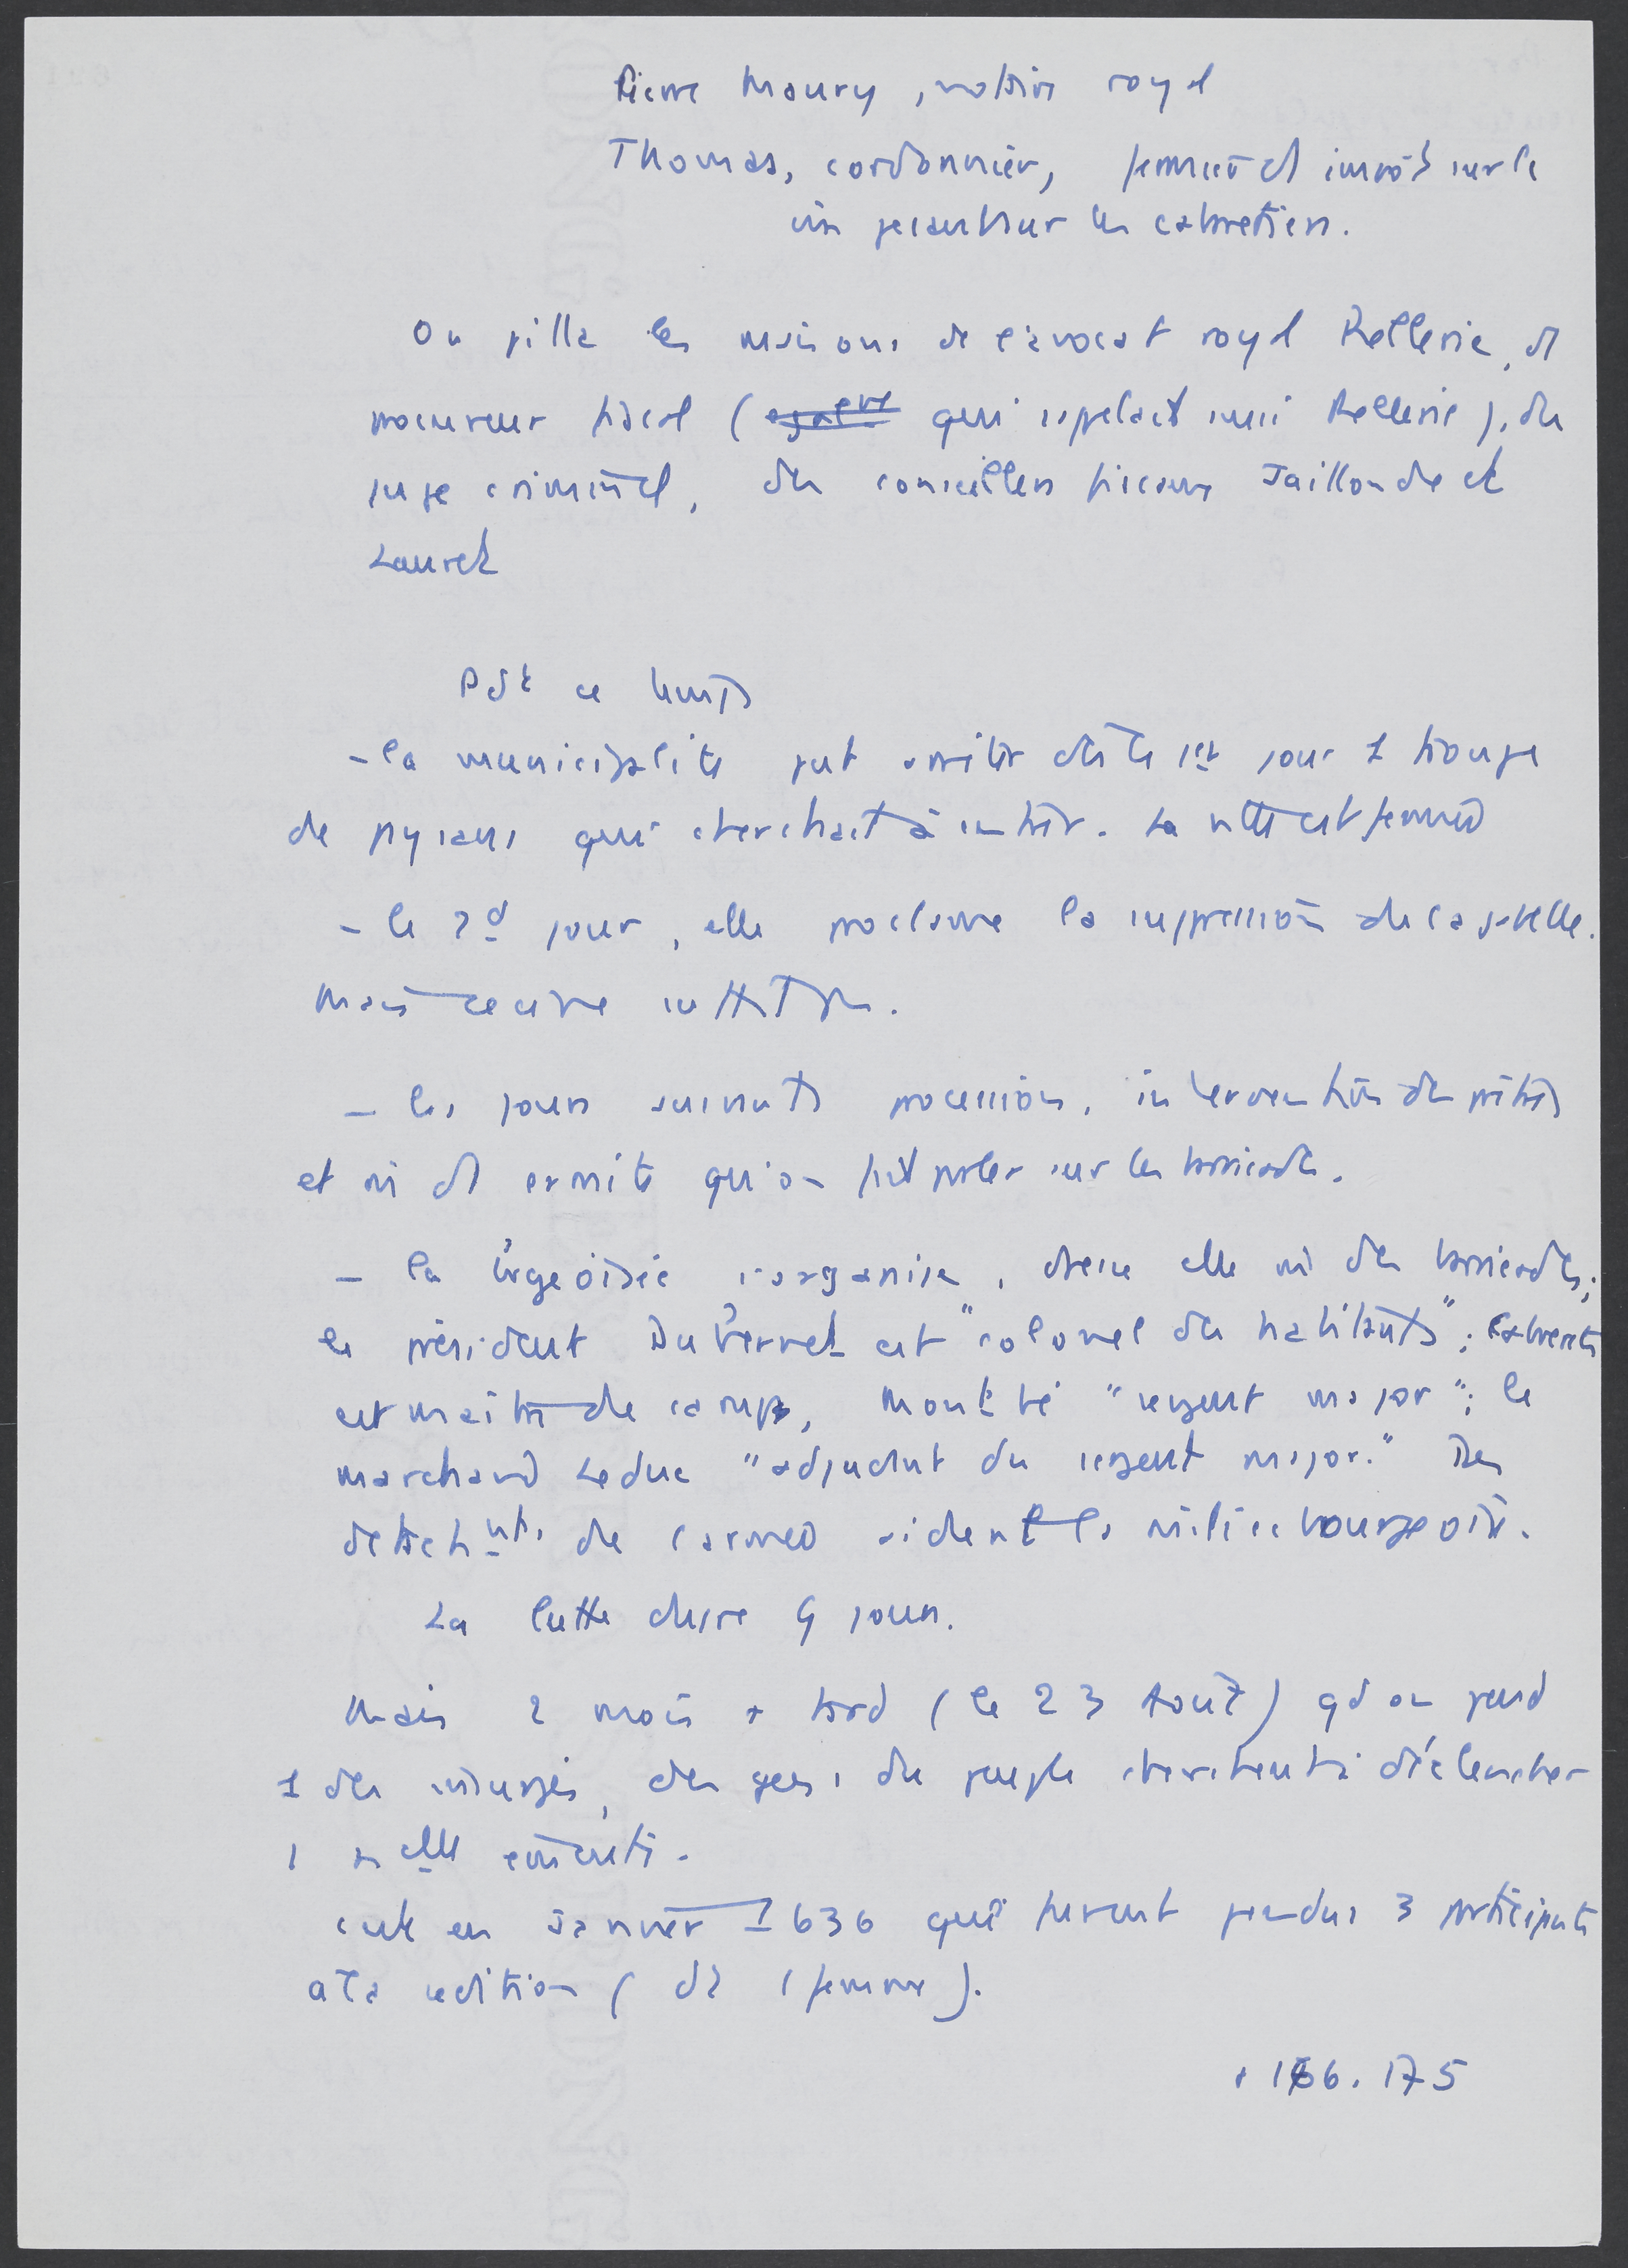 Pierre Maury, notaire royal
Thomas, cordonnier, fermier d'1 impôt sur le
vin pesant sur les cabaretiers.
On pilla les maisons de l'avocat royal Rellerie, d'1
procureur fiscal ( qui s'appelait aussi Rellerie), du
juge criminel, des conseillers fiscaux Jaillonde et
Lauret
Pdt ce temps
- la municipalité put arrêter dès le 1er jour 1 troupe
de paysans qui cherchait à entrer. La ville est fermée
- le 2d jour, elle proclame la suppression de la gabelle.
Mais ce
- les jours suivants processions, intervention des prêtres
et mi d'1 ermite qu'on fit parler sur les barricades.
- la b°rgeoisie s'organise, dresse elle mi des barricades;
le président Du Vernet est "colonel des habitants";
est maître de camp, "sergent major"; le
marchand Leduc "adjudant du sergent major." Des
détachnts de l'armée aident la milice bourgeoise.
La lutte dure 4 jours.
Mais 2 mois + tard (le 23 Août) qd on pend
1 des insurgés, des gens du peuple cherchent à déclencher
1 nelle émeute.
c'est en Janvier 1636 que furent pendus 3 participants
à la sédition (dt 1 femme).
166. 175